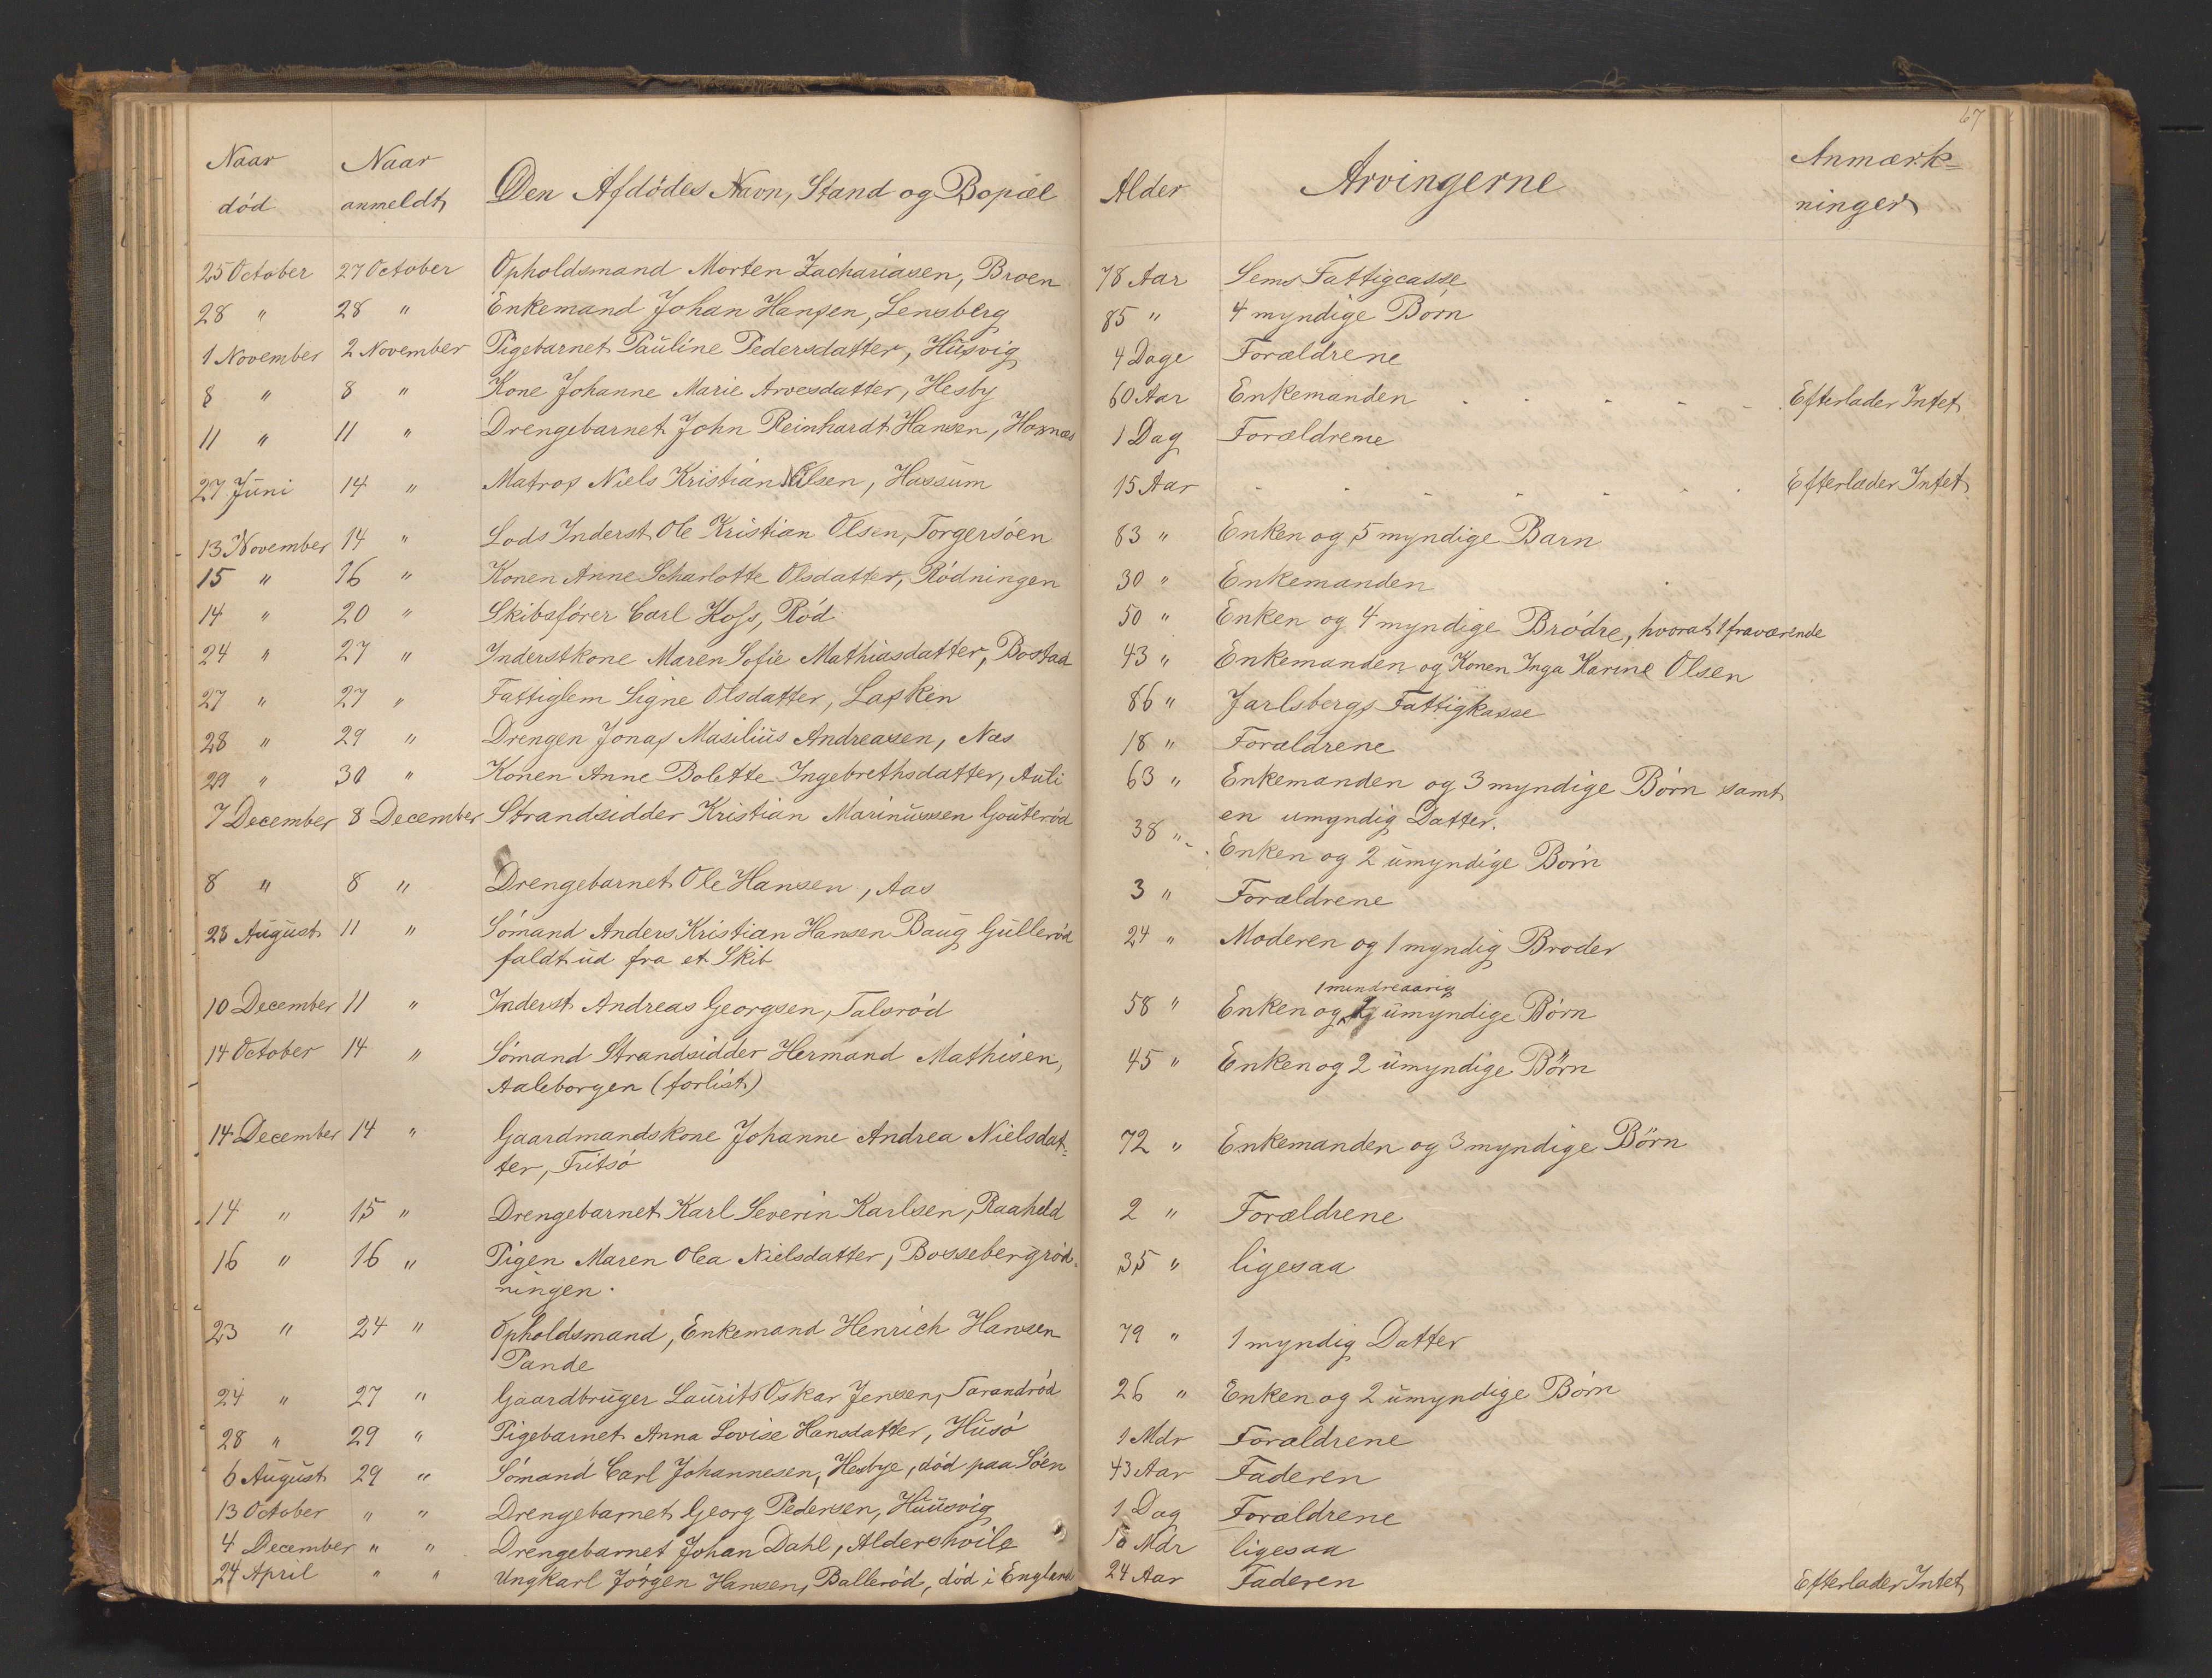 67
Naar død	Naar anmeldt	Den Afdödes Navn, Stand og Bopæl	Alder	Arvingerne	Anmærkninger
25 October	27 October	Opholdsmand Morten Zachariasen, Broen	78 Aar	Sems Fattigcasse
28 "	28 "	Enkemand Johan Hansen, Lensberg	85 "	4 myndige Børn
1 November	2 November	Pigebarnet Pauline Pedersdatter, Husvig	4 Dage	Forældrene
8 "	8 "	Kone Johanne Marie Arvesdatter, Hesby	60 Aar	Enkemanden	Efterlader Intet
11 "	11 "	Drengebarnet John Reinhardt Hansen, Hoxnæs	1 Dag	Forældrene
27 Juni	14 "	Matros Niels Kristian Nilsen, Hassum	15 Aar	Efterlader Intet
13 November	14 "	Lods Inderst Ole Kristian Olsen, Torgersöen	83 "	Enken og 5 myndige Barn
15 "	16 "	Konen Anne Scharlotte Olsdatter, Rödningen	30 "	Enkemanden
14 "	20 "	Skibsförer Carl Hoss, Röd	50 "	Enken og 4 myndige Brödre, hvoraf 1 fraværende
24 "	27 "	Inderstkone Maren Sofie Mathiasdatter, Bostad	43 "	Enkemanden og Konen Inga Karine Olsen
27 "	27 "	Fattiglem Signe Olsdatter, Lasken	86 "	Jarlsbergs Fattigkasse
28 "	29 "	Drengen Jonas Masilius Andreasen, Næs	18 "	Forældrene
29 "	30 "	Konen Anne Bolette Ingebrethsdatter, Auli	63 "	Enkemanden og 3 myndige Börn samt
en umyndig Datter.
7 December	8 December	Strandsidder Kristian Marinussen Gouteröd	38 "	Enken og 2 umyndige Börn
8 "	8 "	Drengebarnet Ole Hansen, Aas	3 "	Forældrene
23 August	11 "	Sömand Anders Kristian Hansen Baug Gulleröd	24 "	Moderen og 1 myndig Broder
faldt ud fra et Skib
1 mindreaarig
10 December	11 "	Inderst Andreas Georgsen, Talsröd	58 "	Enken og umyndige Börn
14 October	14 "	Sömand Strandsidder Hermand Mathisen,	45 "	Enken og 2 umyndige Börn
Aaleborgen (forlist)
14 December	14 "	Gaardmandskone Johanne Andrea Nielsdat-	72 "	Enkemanden og 3 myndige Börn
ter, Fritsö
14 "	15 "	Drengebarnet Karl Severin Karlsen, Raaheld	2 "	Forældrene
16 "	16 "	Pigen Maren Olea Nielsdatter, Bossebergröd-	35 "	ligesaa
ningen.
23 "	24 "	Opholdsmand, Enkemand Henrich Hansen	79 "	1 myndig Datter
Pande
24 "	27 "	Gaardbruger Laurits Oskar Jensen, Tarandröd	26 "	Enken og 2 umyndige Börn
28 "	29 "	Pigebarnet Anna Lovise Hansdatter, Husö	1 Mdr	Forældrene
6 August	29 "	Sömand Carl Johannesen, Hesbye, död paa Söen	43 Aar	Faderen
13 October	" "	Drengebarnet Georg Pedersen, Huusvig	1 Dag	Forældrene
4 December	" "	Drengebarnet Johan Dahl, Aldershvile	Mdr	ligesaa
24 April	" "	Ungkarl Jörgen Hansen, Balleröd, död i England	24 Aar	Faderen	Efterlader Intet